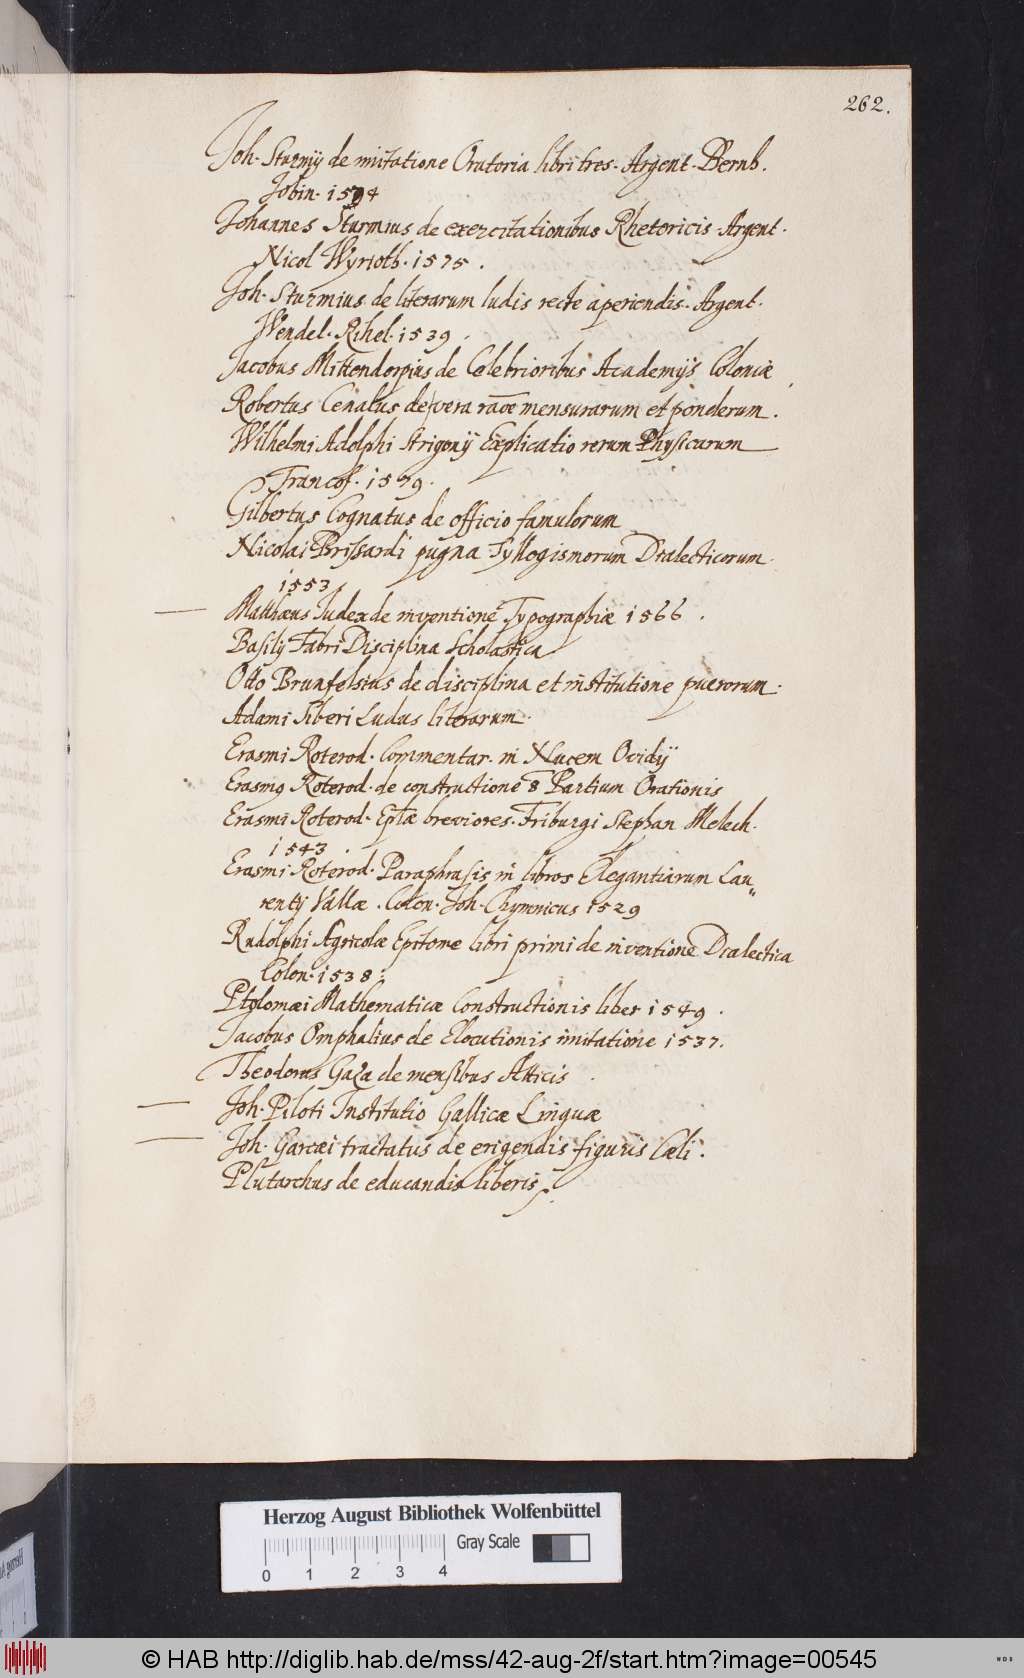 262.
Joh. Sturmij de imitatione Oratoria libri tres. Argent. Bernb.
Jobin. 1574
Johannes Sturmius de exercitationibus Rhetoricis. Argent.
Nicol Wyrioth. 1575.
Joh. Sturmius de literarum ludis recte aperiendis. Argent.
Wendel. Rihel. 1539.
Jacobus Mittendorpius de Celebrioribus Academijs Coloniæ
Robertus Cenalus de vera raõe mensurarum et ponderum.
Wilhelmi Adolphi Scrigonij Explicatio rerum Physicarum
Francof. 1579.
Gilbertus Cognatus de officio famulorum
Nicolai Brissardi pugna Syllogismorum Dialecticorum.
1553
Matthæus Judex de inventione Typographiæ 1566.
Basilij Fabri Disciplina Scholastica
Otto Brunfelsius de disciplina et institutione puerorum.
Adami Siberi Ludus literarum.
Erasmi Roterod. Commentar. in Nucem Ovidij
Erasmq Roterod. de constructione 8 Partium Orationis
Erasmi Roterod. Eplæ breviores. Friburgi Stephan Melech.
1543.
Erasmi Roterod. Paraphrasis in libros Elegantiarum Lau„
rentij Vallæ. Colon. Joh. Gymnicus 1529
Rudolphi Agricolæ Epitome libri primi de inventione Dialectica
Colon. 1538.
Ptolomæi Mathematicæ Constructionis liber 1549.
Jacobus Omphalius de Elocutionis imitatione 1537.
Theodorus Gaza de mensibus Atticis
Joh. Piloti Institutio Gallicæ Linguæ
Joh. Garcæi tractatus de erigendis figuris Cæli.
Plutarchus de educandis liberis.
Herzog August Bibliothek Wolfenbüttel
Gray Scale
0 1 2 3 4
© HAB http://diglib.hab.de/mss/42-aug-2f/start.htm?image=00545